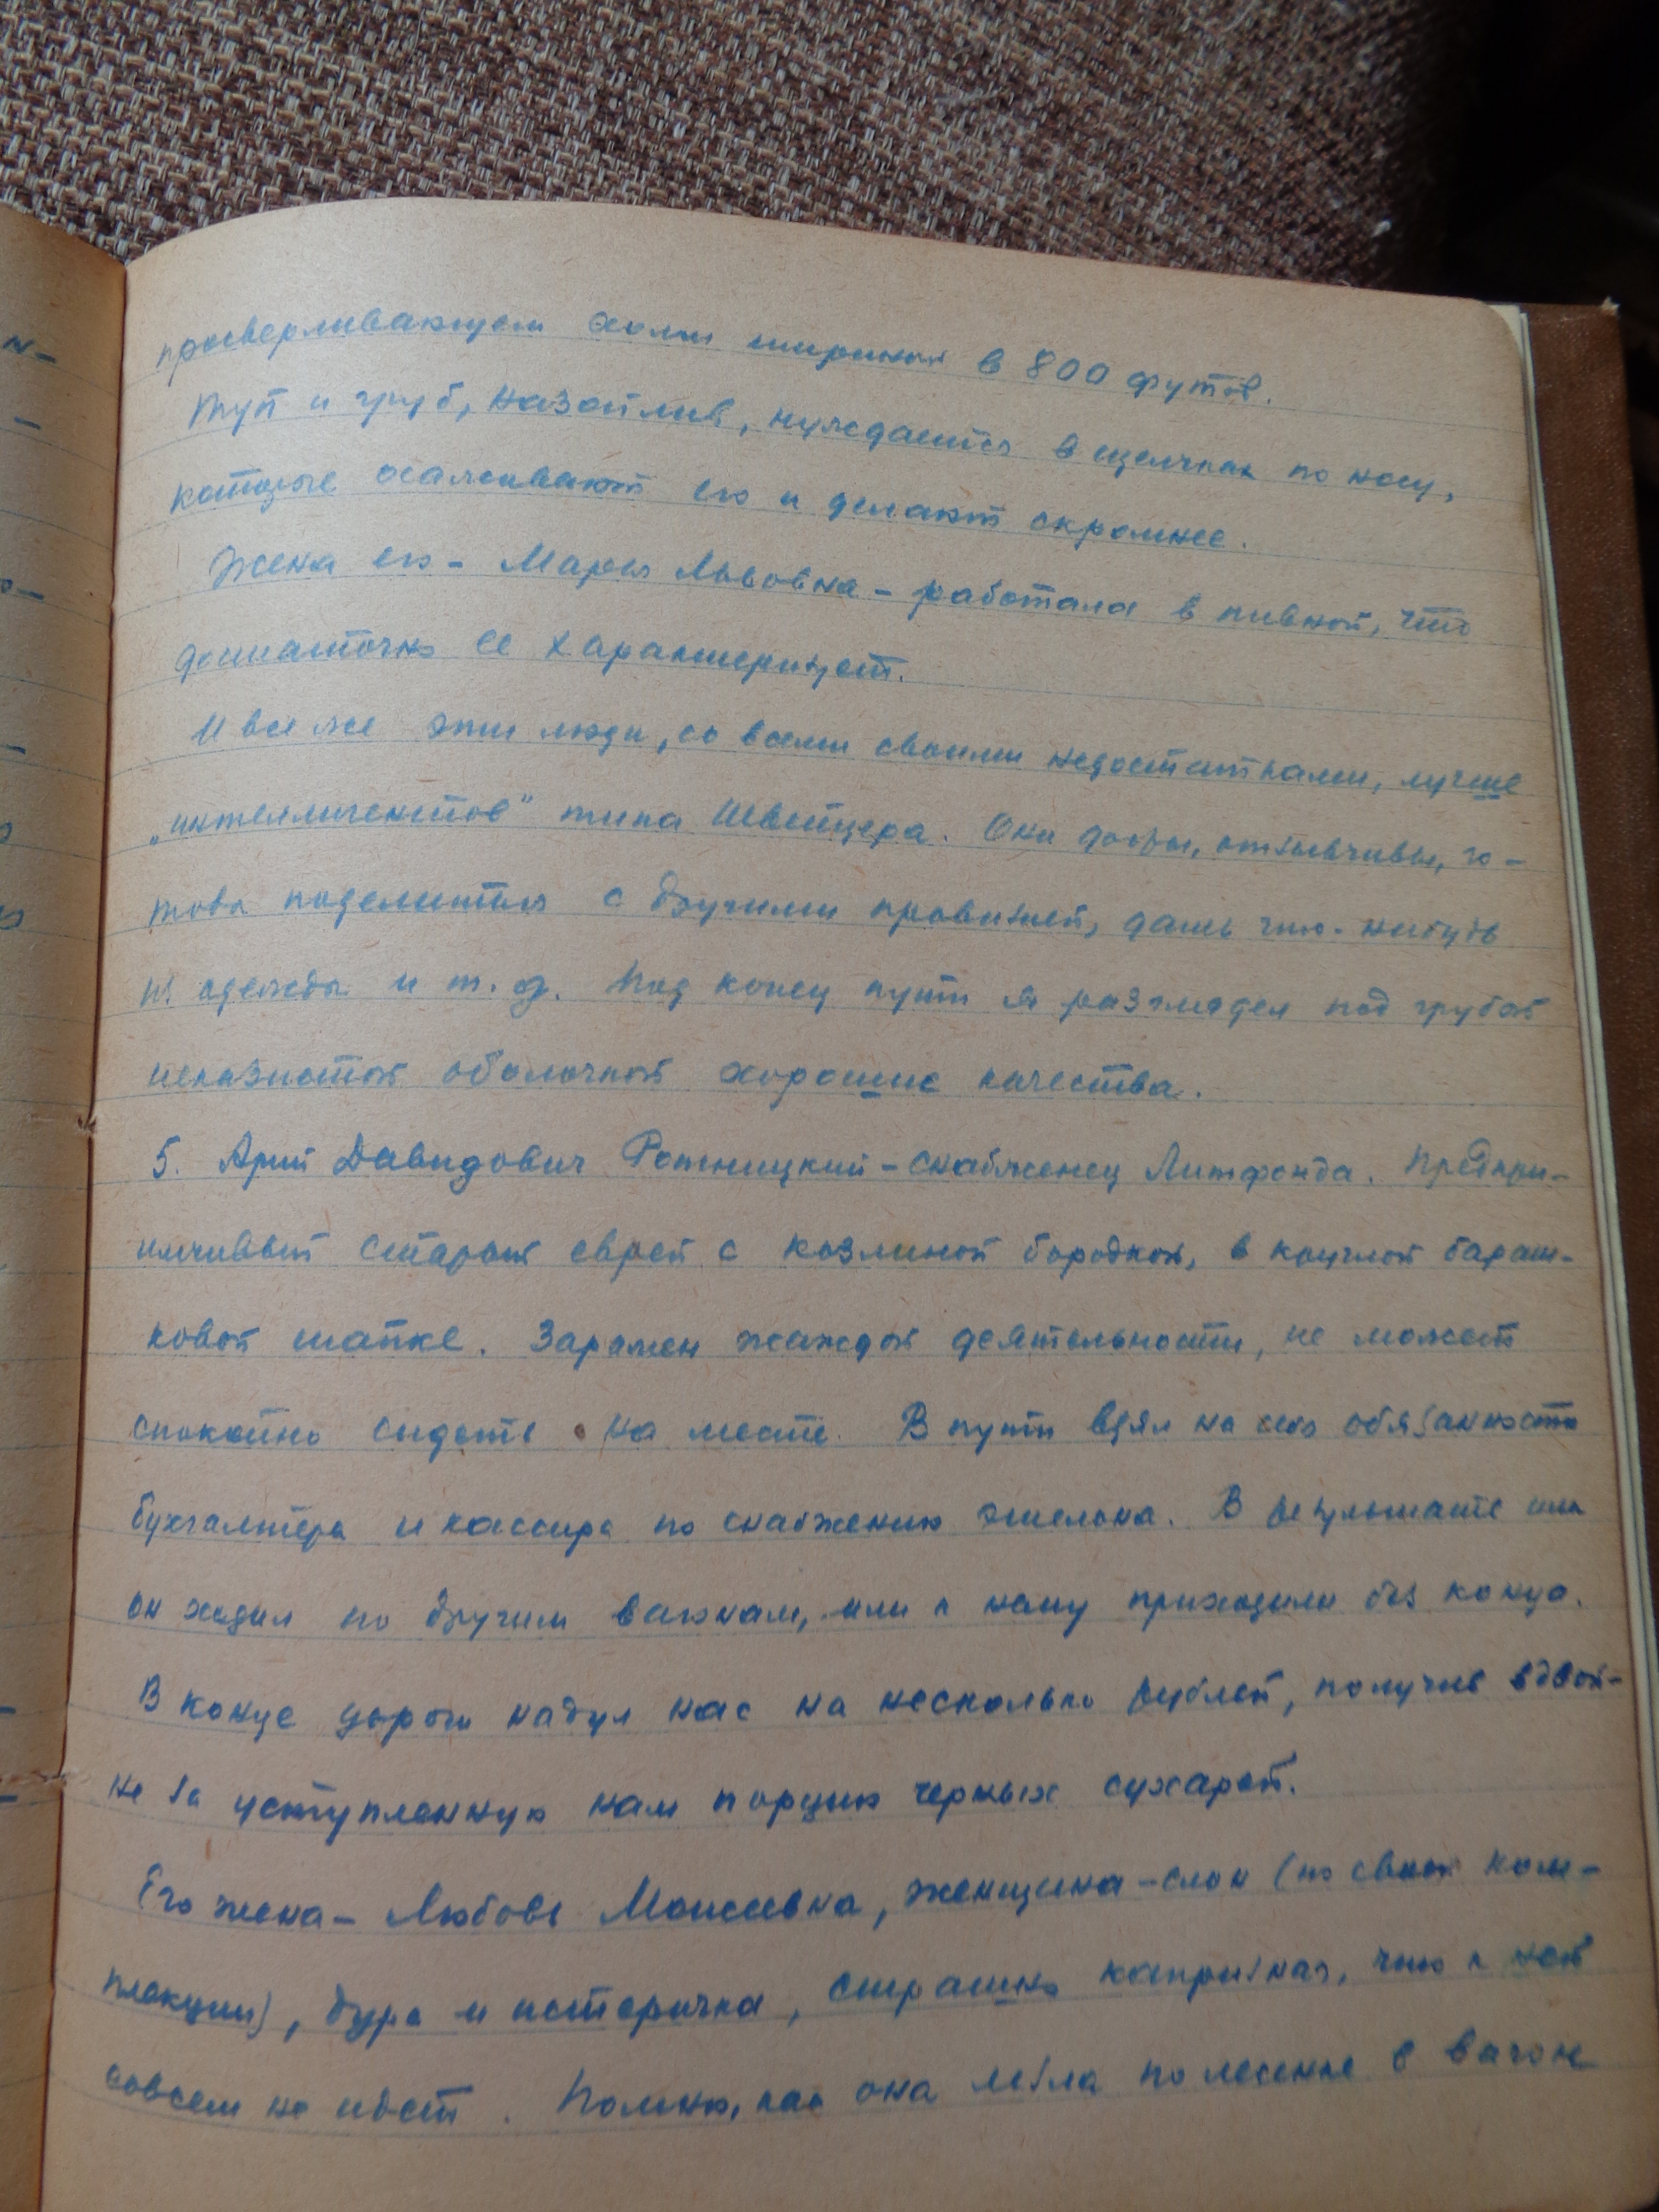 просверливающем холм шириной в 800 футов.
Туп и груб, назойлив, нуждается в щелчках по носу,
которые осаживают его и делают скромнее.
Жена его – Марья Львовна – работала в пивной, что
достаточно ее характеризует.
И все же эти люди, со всеми своими недостатками, лучше
„интеллигентов" типа Швейцера. Они добры, отзывчивы, го-
товы поделиться с другими провизией, дать что-нибудь
из одежды и т.д. Под конец пути я разглядел под грубой
неказистой оболочкой хорошие качества.
5. Арий Давидович Ротницкий – снабженец Литфонда. Предпри-
имчивый старый еврей с козлиной бородкой, в круглой бараш-
ковой шапке. Заражен жаждой деятельности, не может
спокойно сидеть на месте. В пути взял на себя обязанность
бухгалтера и кассира по снабжению эшелона. В результате или
он ходил по другим вагонам, или к нему приходили без конца.
В конце дороги надул нас на несколько рублей, получив вдвой-
не за уступленную нам порцию черных сухарей.
Его жена – Любовь Моисеевна, женщина-слон (по своей ком-
плекции), дура и истеричка, страшно капризная, что к ней
совсем не идет. Помню, как она лезла по лесенке в вагон